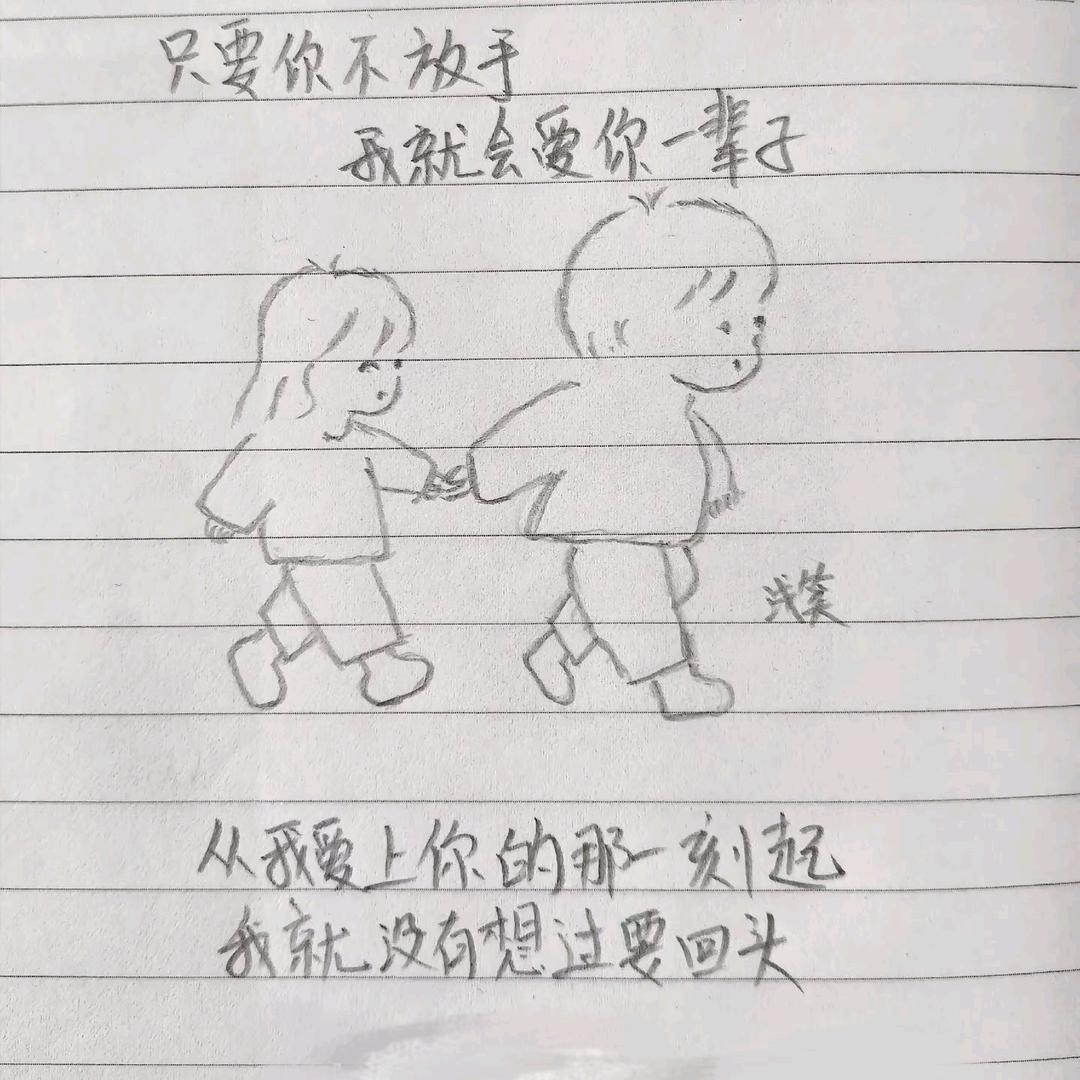 只要你不放手
我就会爱你一辈子
浅笑
从我爱上你的那一刻起
我就没有想过要回头